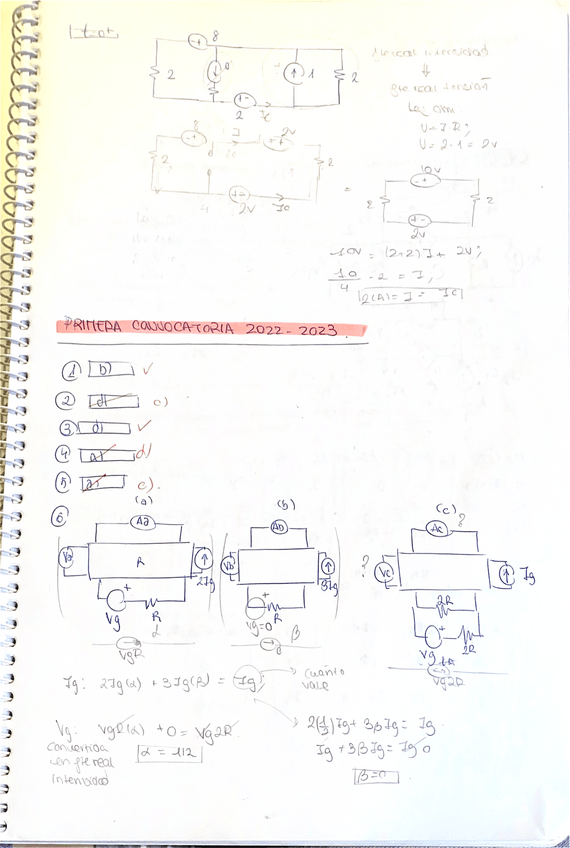 t=0+
8
2
1
2
2
Ic
fte real intensidad
⇓
fte real tensión
Ley ohm
V=IR;
V=2·1=2v
8
I
2v
2
2
4
2v
Io
=
10v
2
2
2v
10v = (2+2)I + 2v;
10/4 - 2 = I;
2(A) = I = Ic
PRIMERA CONVOCATORIA 2022-2023
① b) ✓
② d) c)
③ d) ✓
④ a) d)
⑤ a) c).
⑥
(a)
(b)
(c)
Aa
Ab
Ac ?
Va
R
2Ig
Vb
3Ig
?
Vc
Ig
+
Vg
R
+
Vg=0
R
2R
+
Vg
2R
α
β
VgR
Vg2R
Ig: 2Ig(α) + 3Ig(β) = Ig;
cuánto vale
Vg: VgR(α) + 0 = Vg2R
convertida en fte real intensidad
α = 1/2
2(1/3)Ig + 3βIg = Ig
Ig + 3βIg = Ig 0
β=0